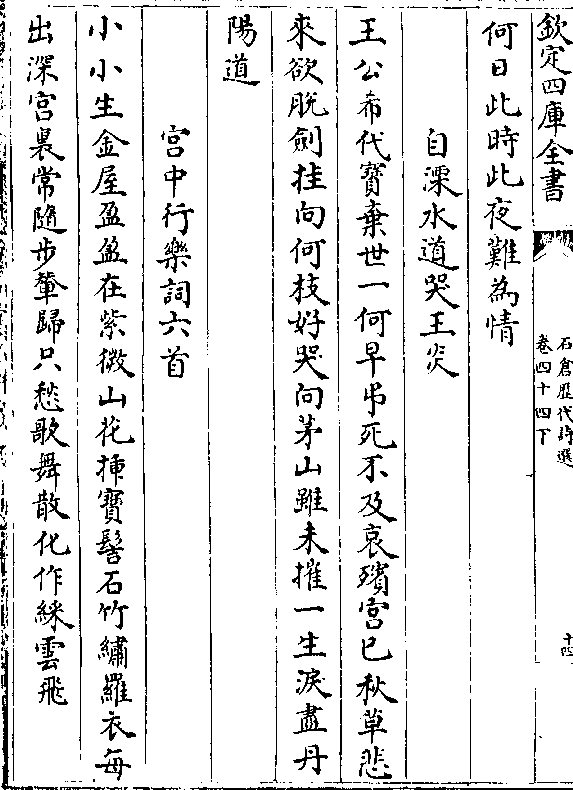 欽定四庫全書
石倉歷代詩選
卷四十四下
十四
何日此時此夜難為情
自溧水道哭王炎
王公希代寶棄世一何早弔死不及哀殯宫已秋草悲
來欲脫劍挂向何枝好哭向茅山雖未摧一生淚盡丹
陽道
宫中行樂詞六首
小小生金屋盈盈在紫微山花揷寶髻石竹繡羅衣每
出深宫裏常隨步輦歸只愁歌舞散化作綵雲飛